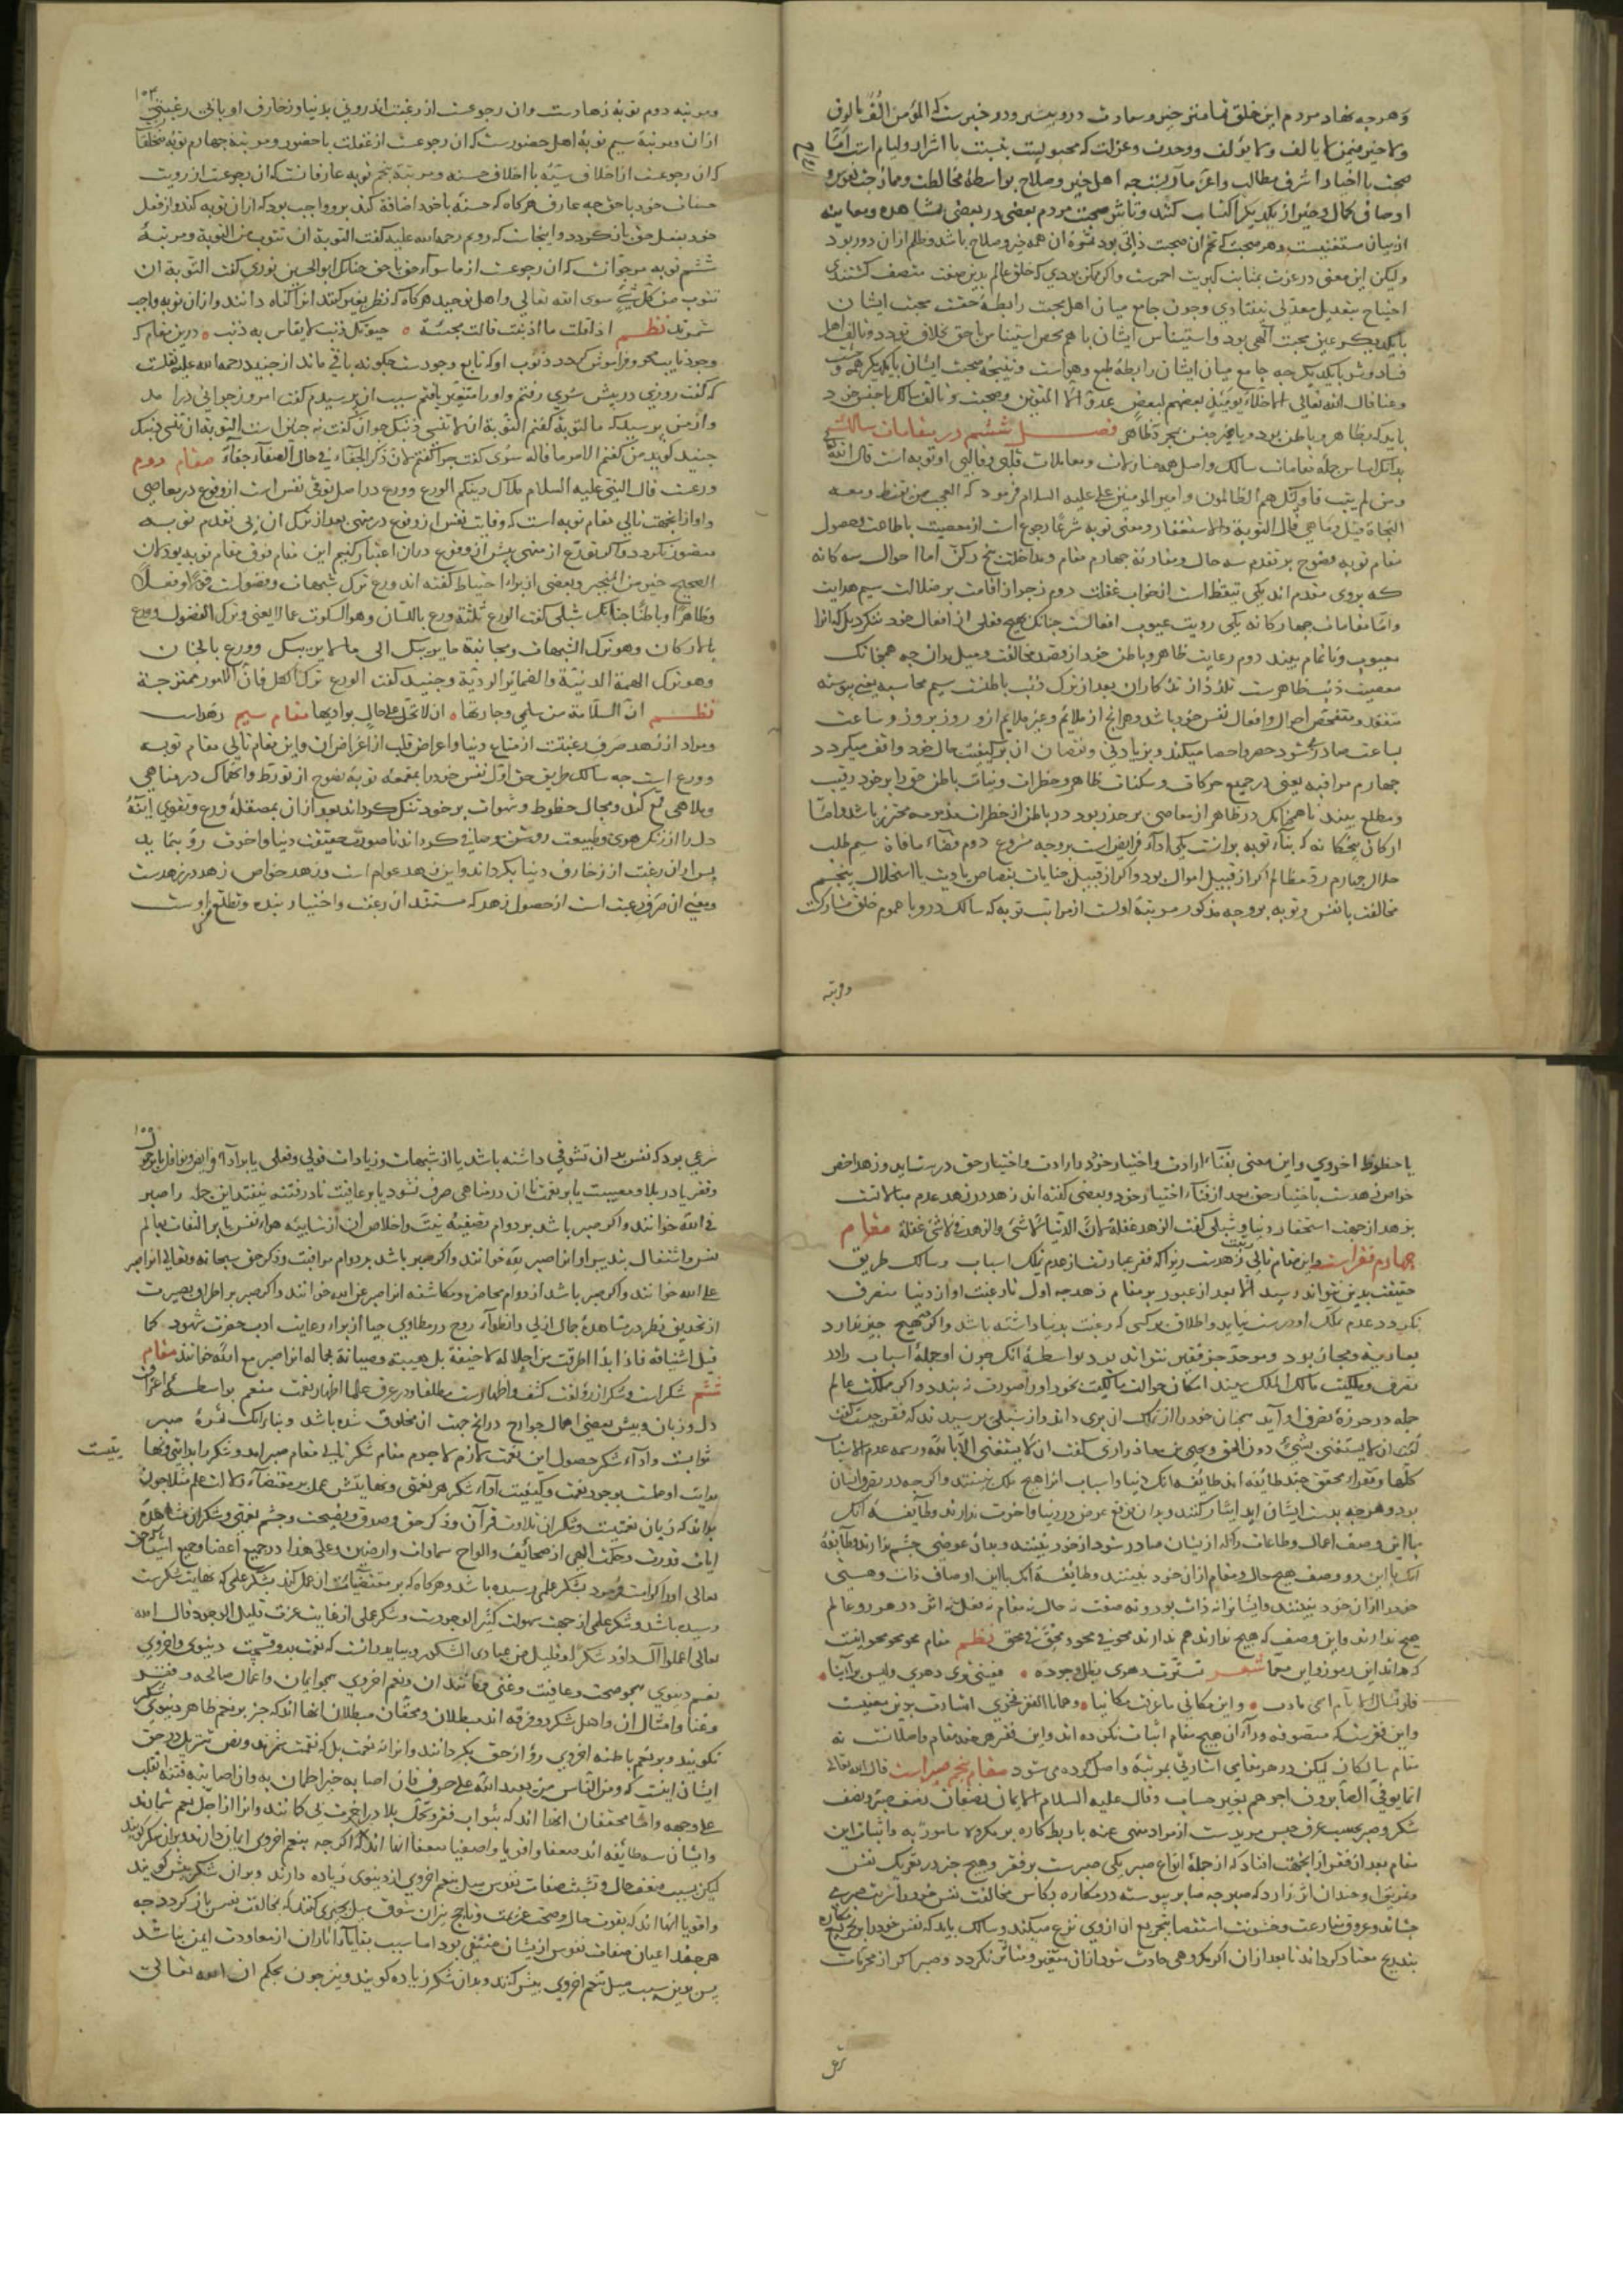 وهرچه نهاد مردم این خلق تمامتر خیر و سعادت درو بیشتر و در خبرست که المؤمن اِلْفٌ مألوف
ولا خیر فیمن لا یألف ولا یؤلف ووحدت وعزلت که محبوبست بنسبت با اشرار ولیام است امّا
صحبت با اخیار اشرف مطالب واعزّ مآرب چه اهل خیر وصلاح بواسطهٔ مخالطت وممازجت نفوس و
اوصاف کمال وخیر از یکدیگر اکتساب کنند وتأثیر صحبت مردم بعضی در بعضی بمشاهده ومعاینه
از بیان مستغنیست وهر صحبت که ثمر آن صحبت ذاتی بود ثمرهٔ آن همه خیر وصلاح باشد وظلم ازان دور بود
ولیکن این معنی در عزت بمثابت کبریت احمرست واگر ممکن بودی که خلق عالم بدین صفت متصف گشتندی
احتیاج بتعدیل معدّلی نیفتادی وچون جامع میان اهل محبت رابطهٔ حقست محبت ایشان
با یکدیگر عین محبت الٓهی بود واستیناس ایشان با هم محض استیناس با حق بخلاف تودد وتألف اهل
فساد وشر با یکدیگر چه جامع میان ایشان رابطهٔ طبع وهواست ونتیجهٔ صحبت ایشان با یکدیگر همه وحشت
وعنا قال الله تعالی الاخلاء یومئذ بعضهم لبعض عدوّ الّا المتقین وصحبت وتألف سالک با جنس خود
باید که بظاهر وباطن بود وبا غیر جنس بمجرد ظاهر فصل ششم در مقامات سالک
بدانک اساس جملهٔ مقامات سالک واصل همه منازلات ومعاملات قلبی وقالبی او توبه است قال الله
ومن لم یتب فاولئک هم الظالمون وامیر المؤمنین علی علیه السلام فرمود که العجب ممن یقنط ومعه
النجاة قیل وما هی قال التوبة والاستغفار ومعنی توبه شرعًا رجوع است از معصیت با طاعت وحصول
مقام توبه نصوح بر تقدم سه حال ومقارنهٔ چهارم مقام ومداخلت پنج رکن اما احوال سه گانه
که بروی مقدم اند یکی تیقظ است از خواب غفلت دوم زجر از اقامت بر ضلالت سیم هدایت
وامّا مقامات چهارگانه یکی رؤیت عیوب افعالست چنانک بهیچ فعلی از افعال خود ننگرد بل که انرا
معیوب وناتمام بیند دوم رعایت ظاهر وباطن خود از قصد مخالفت ومیل بدان چه همچنانک
معصیت ذنب ظاهرست تلذذ از تذکار آن بعد از ترک ذنب باطنست سیم محاسبه یعنی پیوسته
متفقد ومتفحص احوال وافعال نفس خود باشد وهرانچ از ملایم وغیر ملایم ازو روز بروز وساعت
بساعت صادر شود حصر واحصا میکند وبزیادتی ونقصان آن بر کیفیت حال خود واقف میگردد
چهارم مراقبه یعنی در جمیع حرکات وسکنات ظاهر وخطرات ونیات باطن حق را بر خود رقیب
ومطلع بیند تا همچنانک در ظاهر از معاصی بر حذر بود در باطن از خطرات مذمومه محترز باشد وامّا
ارکان پنجگانه که بناء توبه برانست یکی اداء فرایض است بر وجه مشروع دوم قضاء مافات سیم طلب
حلال چهارم ردّ مظالم اگر از قبیل اموال بود واگر از قبیل جنایات بقصاص یا دیت یا استحلال پنجم
مخالفت با نفس وتوبه بر وجه مذکور مرتبهٔ اولست از مراتب توبه که سالک درو با عموم خلق مشارکت
ومرتبه
۱۰۳
ومرتبه دوم توبهٔ زهادست وان رجوعست از رغبت اندرونی بدنیا وزخارف او با بی رغبتی
ازان ومرتبهٔ سیم توبهٔ اهل حضورست که آن رجوعست از غفلت با حضور ومرتبهٔ چهارم توبهٔ متخلقان
که آن رجوعست از اخلاق سیئه با اخلاق حسنه ومرتبهٔ پنجم توبه عارفانست که آن رجوعست از رویت
حسنات خود با حق چه عارف هرگاه که حسنهٔ با خود اضافة کند برو واجب بود که ازان توبه کند واز فعل
خود بفعل حق باز گردد واینجاست که رویم رحمه الله علیه گفت التوبة ان تتوب من التوبة ومرتبهٔ
ششم توبه موحدانست که آن رجوعست از ما سوای حق با حق چنانک ابو الحسین نوری گفت التّوبة ان
تتوب من کل شیءٍ سوی الله تعالی واهل توحید هرگاه که نظر بغیر کنند انرا گناه دانند وازان توبه واجب
شمرند نظم اذا قلت ما اذنبت قالت مجیبة ۰ حیوتک ذنب لا یقاس به ذنب ۰ درین مقام که
وجود نابیند محو وفراموش گردد ذنوب او که تابع وجودست چگونه باقی ماند از جنید رحمه الله علیه نقلست
که گفت روزی در پیش سَری رفتم واو را متغیر یافتم سبب آن پرسیدم گفت امروز جوانی درآمد
واز من پرسید که ما التوبة گفتم التوبة ان لا تنسی ذنبک جوان گفت نه چنین است التوبة ان تنسی ذنبک
جنید گوید من گفتم الامر ما قاله سری گفت چرا گفتم لان ذکر الجفاء فی حال الصفآء جفآء مقام دوم
ورعست قال النبی علیه السلام ملاک دینکم الورع وورع در اصل توقی نفس است از وقوع در معاصی
واو از انجهت تالی مقام توبه است که وقایت نفس از وقوع در منهی بعد از ترک آن بی تقدم توبه
متصور نگردد واگر تورع از منهی پیش از وقوع دران اعتبار کنیم این مقام فوق مقام توبه بود لان
الصحیح خیر من المنجبر وبعضی از برای احتیاط گفته اند ورع ترک شبهات وفضولست قولًا وفعلًا
وظاهرًا وباطنًا چنانک شبلی گفت الورع ثلثة ورع باللسان وهو السکوت عما لا یعنی وترک الفضول وورع
بالارکان وهو ترک الشبهات ومجانبة ما یریبک الی ما لا یریبک وورع بالجنان
وهو ترک الهمة الدنیّة والضمائر الردیّة وجنید گفت الورع ترک الکل فانّ الامور ممتزجة
نظم انّ السلامة من سلمی وجارتها ۰ ان لا تحل علی حال بوادیها مقام سیم زهدست
ومراد از زهد صرف رغبتست از متاع دنیا واعراض قلب از اعراض آن واین مقام تالی مقام توبه
وورع است چه سالک طریق حق اوّل نفس خود را بمقمعهٔ توبهٔ نصوح از تورّط وانهماک در مناهی
وملاهی قمع کند ومجال حظوظ وشهوات بر خود تنگ گرداند بعد ازان بمصقلهٔ ورع وتقوی آینهٔ
دل را از زنگ هوی وطبیعت روشن وصافی گرداند تا صورت حقیقت دنیا وآخرت رو بنماید
پس ازان رغبت از زخارف دنیا بگرداند واین زهد عوام است وزهد خواص زهد در زهدست
ومعنی آن صرف رغبت است از حصول زهد که مستند آن رغبت واختیار بنده وتطلع نفس اوست
یا حظوظ اخروی واین معنی بفناء ارادت واختیار خود با ارادت واختیار حق درست آید وزهد اخص
خواص زهدست باختیار حق بعد از فناء اختیار خود وبعضی گفته اند زهد در زهد عدم مبالاتست
بزهد از جهت استحقار دنیا وشبلی گفت الزهد غفلة لانّ الدّنیا لا شئ والزهد فی لا شئ غفلة مقام
چهارم فقر است واین مقام تالی رتبت زهدست زیرا که فقر عبارتست از عدم تملک اسباب وسالک طریق
حقیقت بدین نتواند رسید الّا بعد از عبور بر مقام زهد چه اول تا رغبت او از دنیا منصرف
نگردد عدم تملک او درست نیاید واطلاق بر کسی که رغبت بدنیا داشته باشد واگر چه هیچ چیز ندارد
بعاریة ومجاز بود وموحد جز فقیر نتواند بود بواسطهٔ آنک چون او جملهٔ اسباب را در
تصرف وملکیت مالک الملک بیند امکان حوالت مالکیت بخود او را صورت نبندد واگر مملکت عالم
جمله در حوزهٔ تصرف او آید همچنان خود را از تملک آن بری داند واز شبلی پرسیدند که فقر چیست گفت
ان لا یستغنی بشیءٍ دون الحق ویحیی بن معاذ رازی گفت ان لا یستغنی الّا بالله ورسمه عدم الاسباب
کلّها وفقراء محقق چند طایفه اند طائفهٔ آنک دنیا واسباب انرا هیچ ملک نبینند واگر چه در تصرف ایشان
بود وهر چه بدست ایشان آید ایثار کنند وبدان توقع عوض در دنیا وآخرت ندارند وطائفهٔ آنک
با این وصف اعمال وطاعات را که از ایشان صادر شود از خود نبینند وبدان عوضی چشم ندارند وطائفهٔ
آنک با این دو وصف هیچ حال ومقام ازان خود نبینند وطائفهٔ آنک با این اوصاف ذات وهستی
خود را ازان خود نبینند وایشانرا نه ذات بود ونه صفت نه حال نه مقام نه فعل نه اثر در هر دو عالم
هیچ ندارند واین وصف که هیچ ندارند هم ندارند محو فی محو ومحق فی محق نظم مقام محو محو محو اینست
که داند این رموز واین معمّا شعر تسترت دهری بظل وجوده ۰ فعینی تری دهری ولیس یرانیا ۰
فلو تسأل الایام اسمی ما درت ۰ واین مکانی ما عرفن مکانیا ۰ وهمانا الفقر فخری اشارت بدین معنیست
واین فقریست که متصوفه ورآء آن هیچ مقام اثبات نکرده اند واین فقر هر چند مقام واصلانست نه
مقام سالکان لیکن در هر مقامی اشارتی بمرتبهٔ واصل کرده می شود مقام پنجم صبر است قال الله تعالی
انما یوفی الصّابرون اجرهم بغیر حساب وقال علیه السلام الایمان نصفان نصف صبر ونصف
شکر وصبر بحسب عرف حبس مریدست از مراد منهی عنه یا ربط کاره بر مکروه مأمور به واثبات این
مقام بعد از فقر از انجهت افتاد که از جملهٔ انواع صبر یکی صبرست بر فقر وهیچ چیز در تعریک نفس
وتمرین او چندان اثر ندارد که صبر چه صابر پیوسته در مکاره بکاس مخالفت نفس خود را شربت صبر می
چشاند وعروق منازعت وخشونت استقصا بتجریع آن ازوی نزع میکند وسالک باید که نفس خود را بر تجریع مکاره
بتدریج معتاد گرداند تا بعد ازان اگر مکروهی حادث شود ازان متغیر ومتأثر نگردد وصبر اگر از محرمات
شرعی
شرعی بود که نفس بدان تشوقی داشته باشد یا از شبهات وزیادات قولی وفعلی یا بر اداء فرایض ونوافل یا بر جوع
وفقر یا در بلا ومصیبت یا بر نعمت تا آن در مناهی صرف نشود یا بر عافیت تا در فتنه نیفتد این جمله را صبر
فی الله خوانند واگر صبر باشد بر دوام تصفیهٔ نیت واخلاص آن از شایبهٔ هواء نفس یا بر التفات بعالم
نفس واشتغال بتدبیر او انرا صبر لله خوانند واگر صبر باشد بر دوام مراقبت وذکر حق سبحانه وتعالی انرا صبر
علی الله خوانند واگر صبر باشد از دوام محاضره ومکاشفه انرا صبر عن الله خوانند واگر صبر بر اطراق بصیرت
از تحدیق نظر در مشاهدهٔ جمال ازلی وانطواء روح در مطاوی حیا از برای رعایت ادب حضرت شهود کما
قیل اشتاقه فاذا ابدا اطرقت من اجلاله لا خیفة بل هیبة وصیانة لجماله انرا صبر مع الله خوانند مقام
ششم شکر است وشکر از روی لغت کشف واظهارست مطلقا ودر عرف علما اظهار نعمت منعم بواسطهٔ اعتراف
دل وزبان وپیش بعضی اعمال جوارح در انچ جهت آن مخلوق شده باشد وبنابر آنک ثمرهٔ صبر
ثوابست واداء شکر حصول این نعمت لازم لاجرم مقام شکر تالی مقام صبر آمد وشکر را بدایتی ونهایتیست
بدایت او علمست بوجود نعمت وکیفیت اداء شکر هر نعمتی ونهایتش عمل بر مقتضاء دلالت علم مثلا چون
بداند که زبان نعمتیست وشکر آن تلاوت قرآن وذکر حق وصدق ونصیحت وچشم نعمتی وشکر آن مشاهدهٔ
آیات قدرت وحکمت الهی از صحائف والواح سماوات وارضین وعلی هذا در جمیع اعضا وجمیع اشیا که حق
تعالی او را کرامت فرمود بشکر علمی رسیده باشد وهرگاه که بر مقتضیات آن عمل کند بشکر عملی که نهایت شکرست
رسیده باشد وشکر علمی از جهت سهولت کثیر الوجودست وشکر عملی از غایت عزت قلیل الوجود قال الله
تعالی اعملوا آل داود شکرًا وقلیل من عبادی الشکور وبباید دانست که نعمت بدو قسمست دنیوی واخروی
نعم دنیوی همچو صحت وعافیت وغنی ومانند آن ونعم اخروی همچو ایمان واعمال صالحه وفقر
وعنا وامثال آن واهل شکر دو فرقه اند مبطلان ومحقّان مبطلان آنها اند که جز بر نعم ظاهر دنیوی شکر
نگویند وبر نعم باطنهٔ اخروی رو از حق بگردانند وانرا نه نعمت بل که نقمت شمرند ونص تنزیل در حق
ایشان اینست که ومن الناس من یعبد الله علی حرف فان اصابه خیر اطمأن به وان اصابته فتنة انقلب
علی وجهه وامّا محققان آنها اند که بثواب فقر وتحمل بلا در آخرت بی گمانند وانرا از اجلّ نعم شمارند
وایشان سه طایفه اند ضعفا واقویا واصفیا ضعفا آنها اند که اگر چه بنعم اخروی ایمان دارند وبران شکر گویند
لیکن بسبب ضعف حال وتشبث صفات نفوس میل بنعم اخروی از دنیوی زیاده دارند وبران شکر بیش گویند
واقویا آنها اند که بقوت حال وصحت عزیمت وتأجج نیران شوق میل بچیزی کنند که مخالفت نفس باز گردد چه
هر چند اعیان صفات نفوس از ایشان منتفی بود اما سبب بقایا آثار آن از معاودت ایمن نباشد
پس بدین سبب میل بنعم اخروی بیش کنند وبدان شکر زیاده گویند ونیز چون بحکم ان الله تعالی